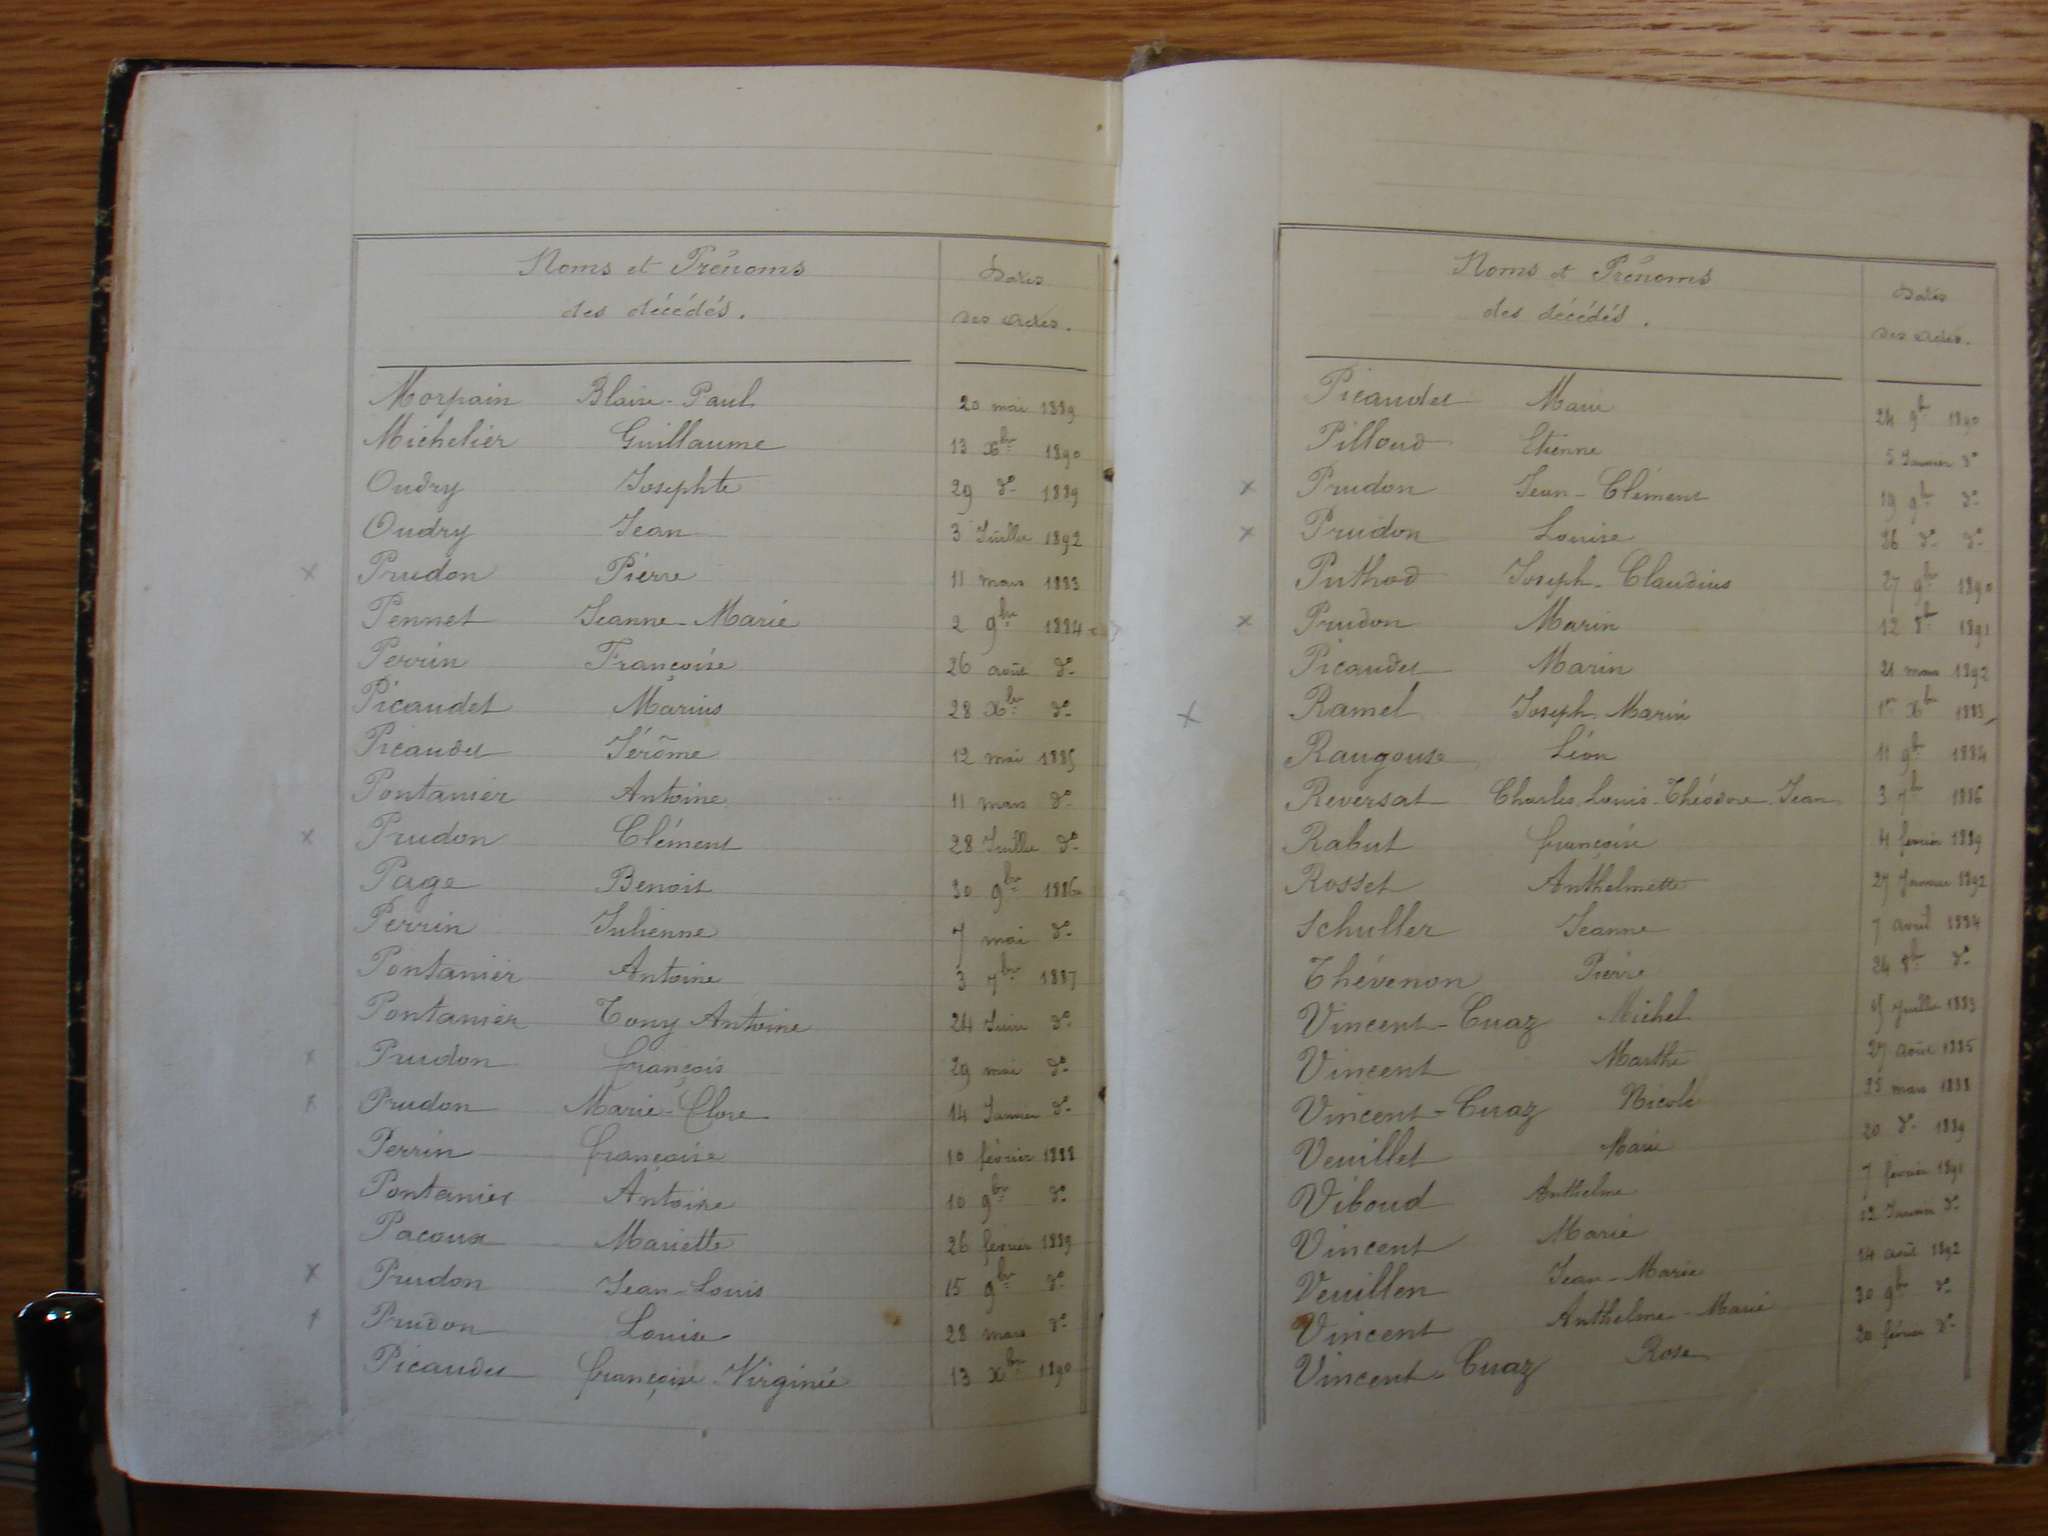 Noms et Prénoms
des décédés.
Dates
des actes.
Morpain Blaise-Paul 20 mai 1889
Michelier Guillaume 13 Xbre 1890
Oudry Josephte 29 do 1889
Oudry Jean 3 Juillet 1892
x Prudon Pierre 11 mars 1883
Pennet Jeanne-Marie 2 9bre 1884
Perrin Françoise 26 août do
Picaudet Marius 28 Xbre do
Picaudet Jérôme 12 mai 1885
Pontanier Antoine 11 mars do
x Prudon Clément 28 Juillet do
Page Benoit 30 9bre 1886
Perrin Julienne 7 mai do
Pontanier Antoine 3 7bre 1887
Pontanier Tony Antoine 24 Juin do
x Prudon françois 29 mai do
x Prudon Marie-Clore 14 Janvier do
Perrin françoise 10 février 1888
Pontanier Antoine 10 9bre do
Pacoux Mariette 26 février 1889
x Prudon Jean-Louis 15 9bre do
x Prudon Louise 28 mars do
Picaudet françoise-Virginie 13 Xbre 1890
Noms et Prénoms
des décédés.
Dates
des actes.
Picaudet Marie 24 9bre 1890
Pilloud Etienne 5 Janvier do
x Prudon Jean-Clément 19 9bre do
x Prudon Louise 26 do do
Puthod Joseph-Claudius 27 9bre 1890
x Prudon Marin 12 8bre 1891
Picaudet Marin 21 mars 1892
x Ramel Joseph Marin 1er Xbre 1883
Raugouse Léon 11 9bre 1884
Reversat Charles Louis-Théodore-Jean 3 7bre 1886
Rabut françoise 4 février 1889
Rosset Anthelmette 27 Janvier 1892
Schuller Jeanne 7 avril 1884
Thévenon Pierre 24 8bre do
Vincent-Cuaz Michel 15 Juillet 1883
Vincent Marthe 27 août 1885
Vincent-Cuaz Nicole 25 mars 1888
Veuillet Marie 20 do 1889
Viboud Anthelme 7 février 1891
Vincent Marie 12 Janvier do
Veuillen Jean-Marie 14 août 1892
Vincent Anthelme-Marie 30 9bre do
Vincent-Cuaz Rose 20 février do